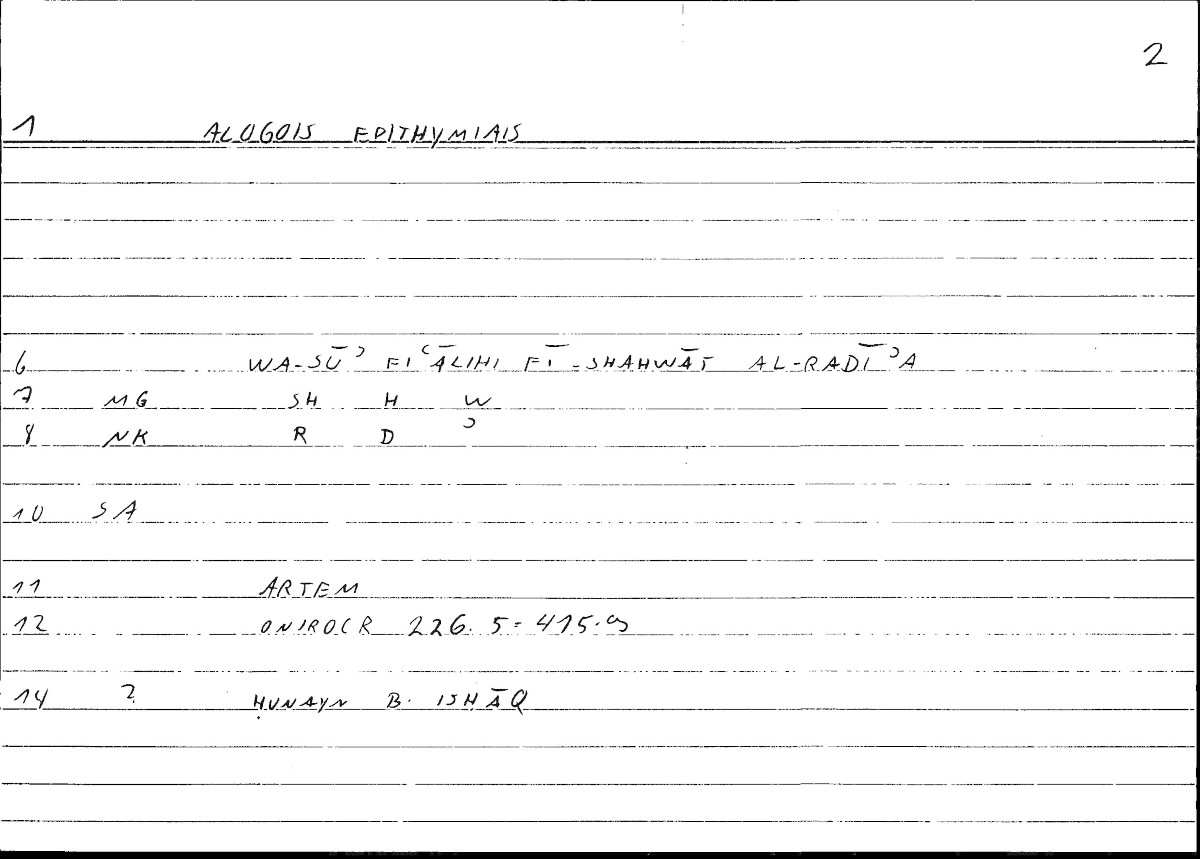 2
1 ALOGOIS EPITHYMIAIS
6 WA-SŪʾ FIʿĀLIHI FĪ-SHAHWĀT AL-RADĪʾA
7 MG SH H W
8 NK R D ʾ
10 SA
11 ARTEM
12 ONIROCR 226.5=415.9
14 ? ḤUNAYN B. ISHĀQ